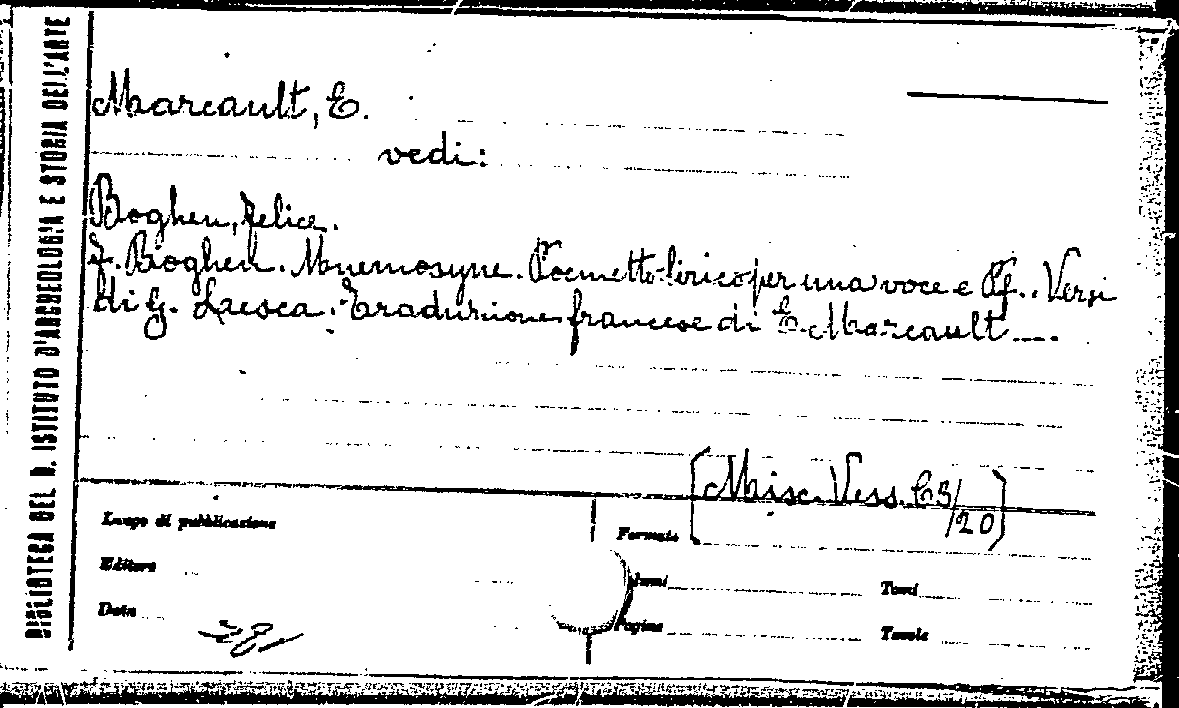 BIBLIOTECA DEL R. ISTITUTO D'ARCHEOLOGIA E STORIA DELL'ARTE
Marcault, E.
vedi:
Boghen, Felice.
F. Boghen. Mnemosyne. Poemetto lirico per una voce e Pf.. Versi
di G. Laesca. Traduzione francese di E. Marcault ....
[Misc. Vess. C3/20]
Luogo di pubblicazione
Formato
Editore
Volumi
Tomi
Data
Pagine
Tavole